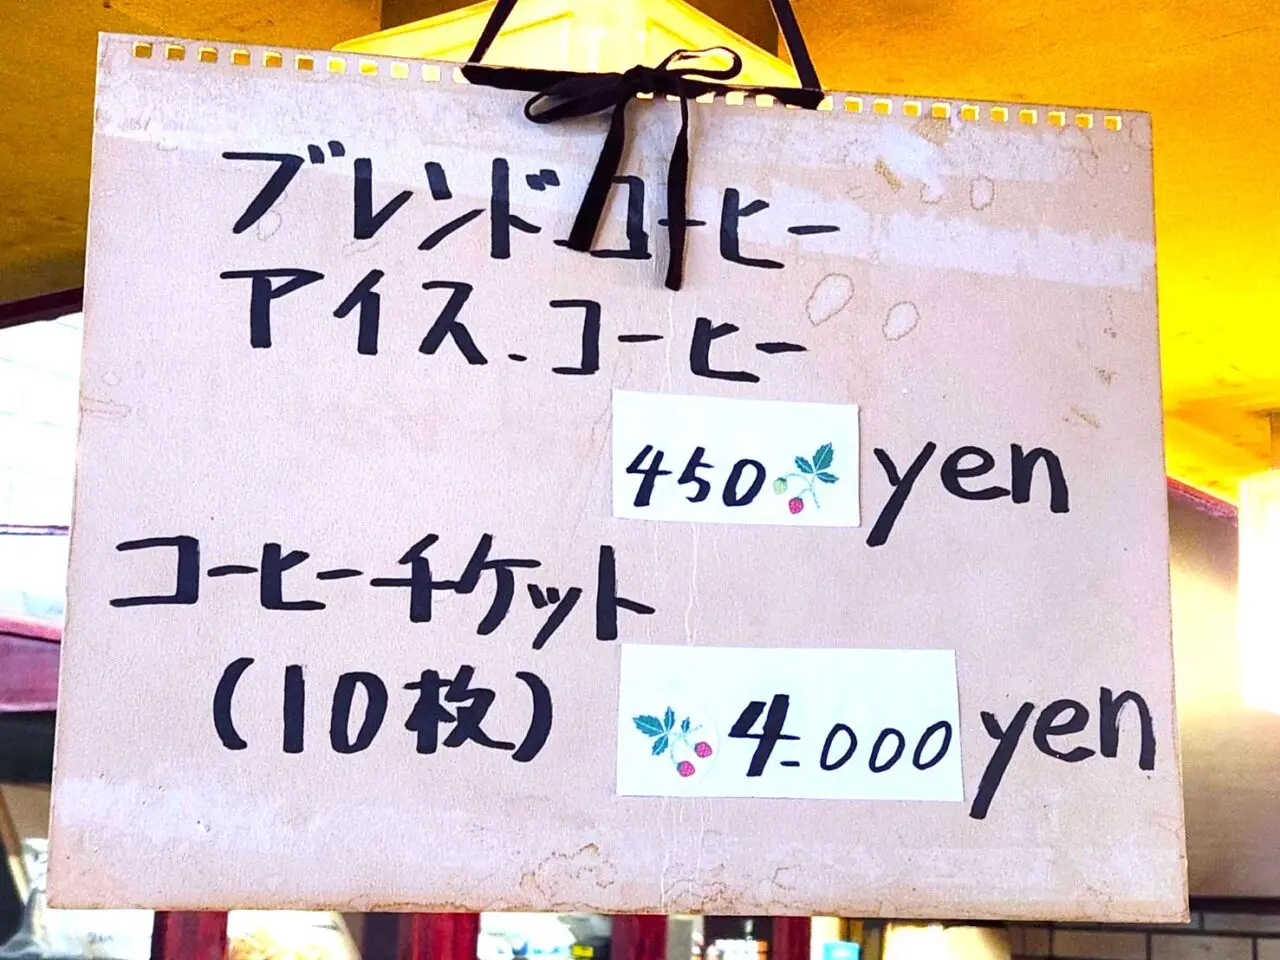 ブレンドコーヒー
アイス.コーヒー
450 yen
コーヒーチケット
(10枚) 4.000 yen